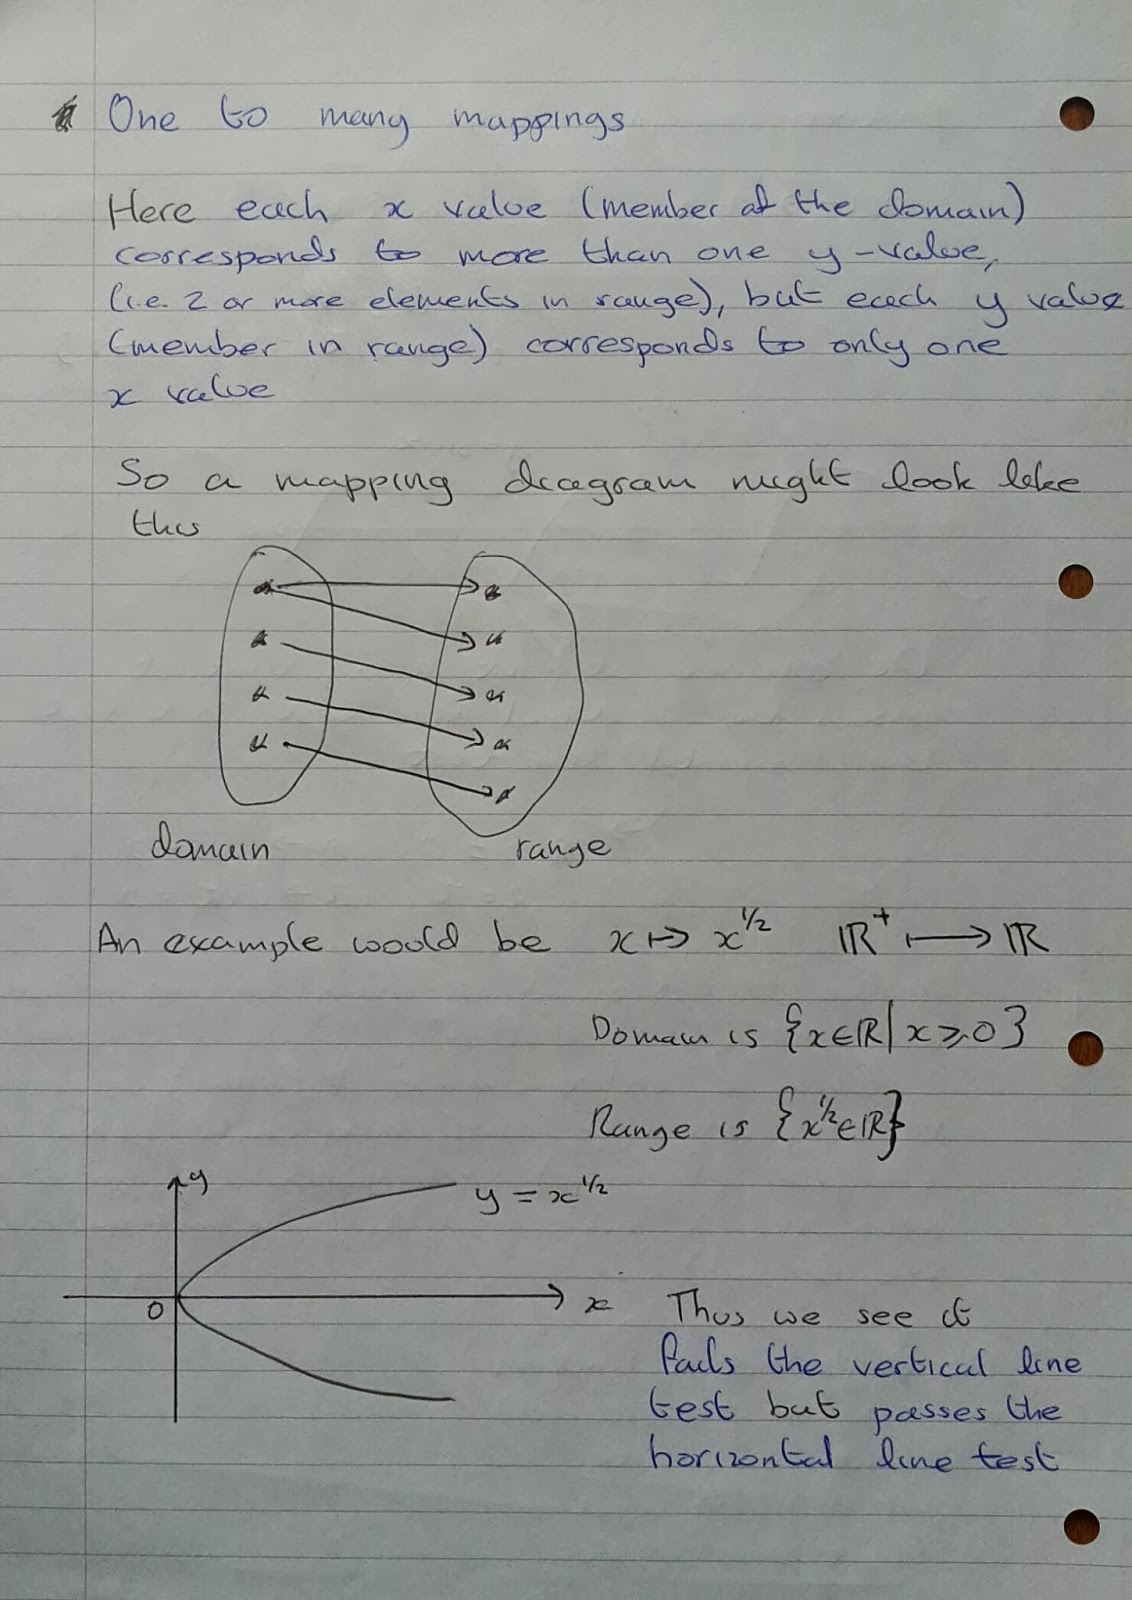 One to many mappings
Here each x value (member of the domain)
corresponds to more than one y-value,
(i.e. 2 or more elements in range), but each y value
(member in range) corresponds to only one
x value
So a mapping diagram might look like
this
domain range
An example would be x ↦ x^1/2 ℝ⁺ ⟼ ℝ
Domain is {x∈ℝ | x⩾0}
Range is {x^1/2∈ℝ}
y
y = x^1/2
0
x
Thus we see it
fails the vertical line
test but passes the
horizontal line test